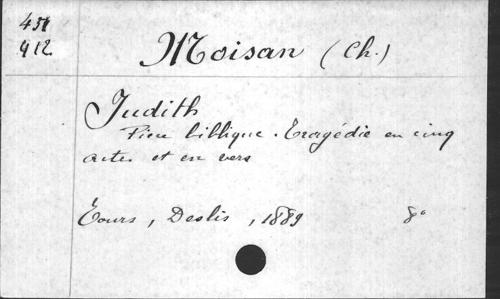 451
912
Moisan (Ch.)
Judith
Pièce biblique. Tragédie en cinq
actes et en vers
Tours, Deslis, 1889 8°